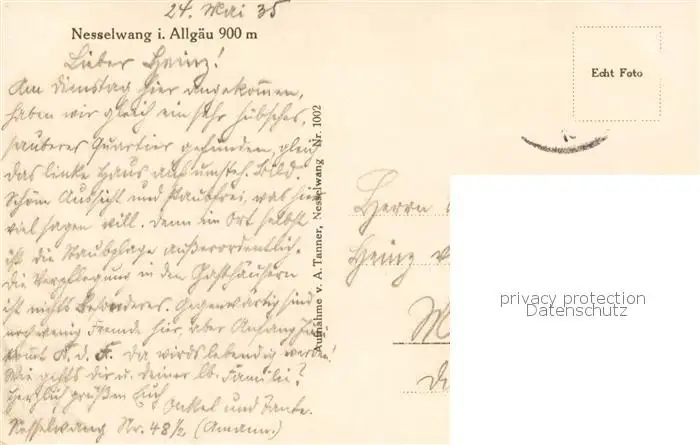 24. Mai 35
Nesselwang i. Allgäu 900 m
Lieber Heinz!
Am Dienstag hier angekommen,
haben wir gleich ein sehr hübsches,
sauberes Quartier gefunden, gleich
das linke Haus auf umsteh. Bild.
Schöne Aussicht und staubfrei, was hier
viel sagen will. Denn im Ort selbst
ist die Staubplage außerordentlich.
Die Verpflegung in den Gasthäusern
ist nichts besonderes. Gegenwärtig sind
noch wenig Fremde hier, aber Anfang
kommt K. d. F. da wirds lebendig werden!
Wie gehts dir u. deiner lb. Familie?
Herzlich grüßen Euch
Onkel und Tante.
Nesselwang Nr. 48½ (Amann.)
Aufnahme v. A. Tanner, Nesselwang Nr. 1002
Echt Foto
Herrn
Heinz
privacy protection
Datenschutz